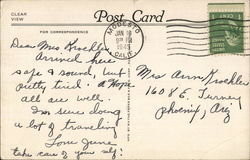 CLEAR
VIEW
Post Card
FOR CORRESPONDENCE
MODESTO
JAN
PM
1945
CALIF.
1 CENT 1
Dear Mrs Krochler
Arrived here
safe & sound, but
pretty tired. Hope
all are well.
Im sure doing
a lot of traveling
Love June
take care of your self
Mrs Anna Krochler
1608 E. Turney
Phoenix, Ariz